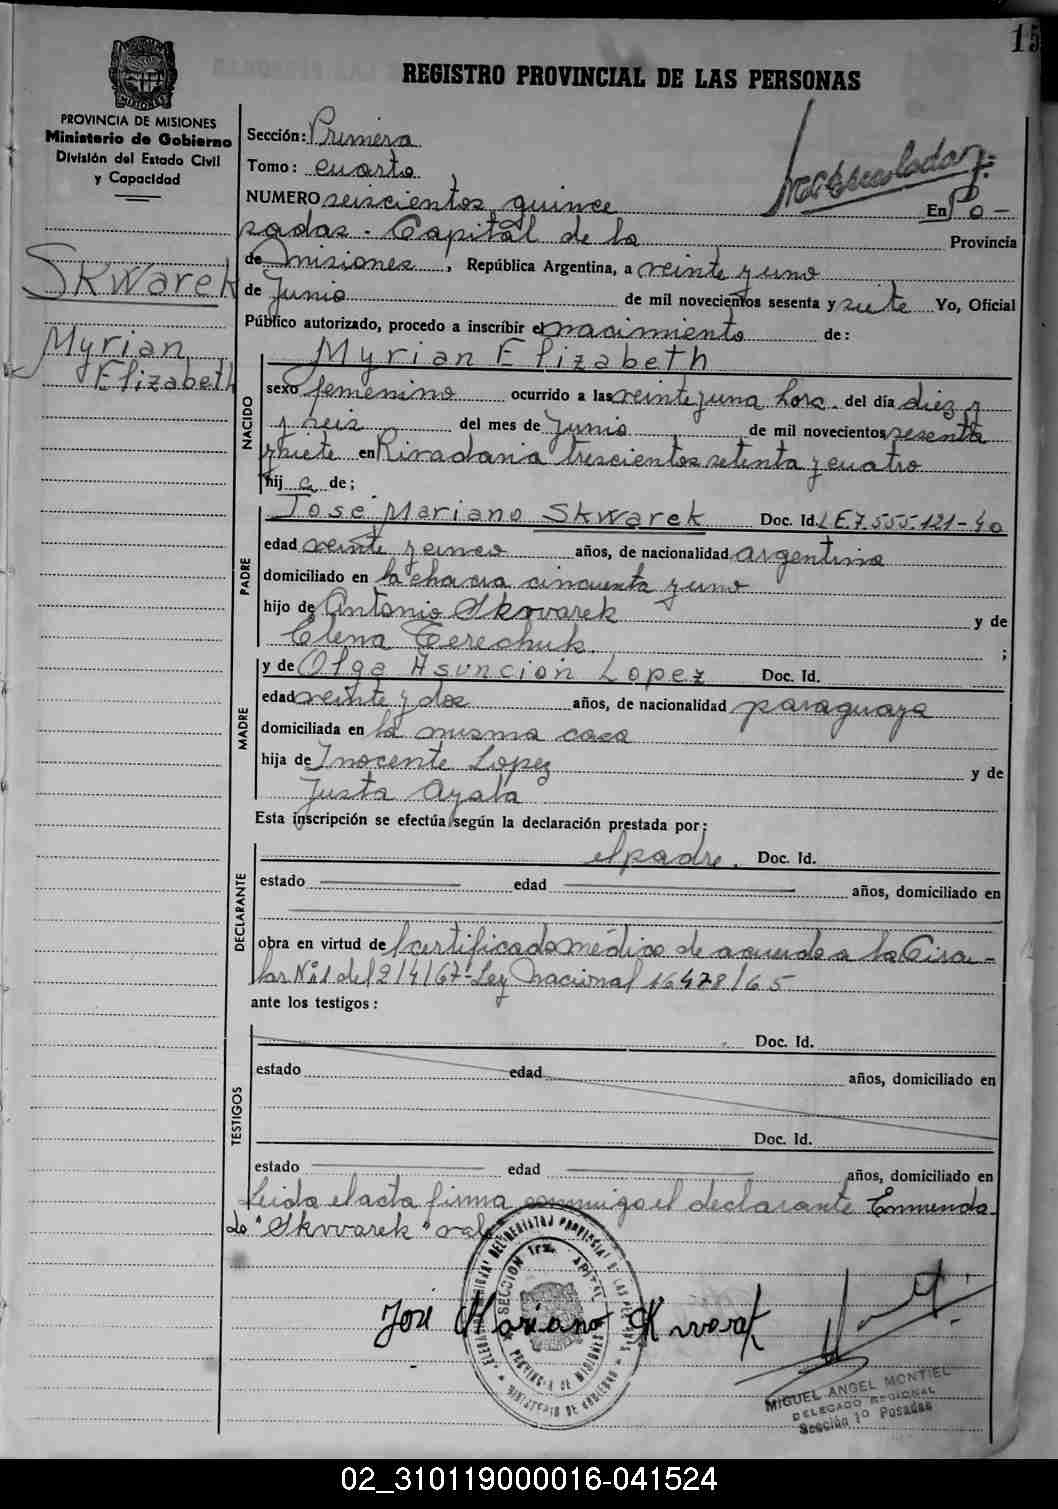 15
REGISTRO PROVINCIAL DE LAS PERSONAS
PROVINCIA DE MISIONES
Ministerio de Gobierno
División del Estado Civil
y Capacidad
SKWarek
Myrian
Elizabeth
Sección: Primera
Tomo: cuarto
NUMERO seiscientos quince
En Po-
sadas - Capital de la Provincia
de Misiones, República Argentina, a veinte y uno
de Junio de mil novecientos sesenta y siete Yo, Oficial
Público autorizado, procedo a inscribir el nacimiento de:
Myrian Elizabeth
NACIDO
sexo femenino ocurrido a las veinte y una hora. del día diez y
y seis del mes de Junio de mil novecientos sesenta
y siete en Rivadavia trescientos setenta y cuatro
hij a de;
PADRE
José Mariano Skwarek Doc. Id. L E 7.555.121-40
edad veinte y cinco años, de nacionalidad argentina
domiciliado en la chacra cincuenta y uno
hijo de Antonio Skwarek y de
Elena Terechuk. ;
MADRE
y de Olga Asunción Lopez Doc. Id.
edad veinte y dos años, de nacionalidad paraguaya
domiciliada en la misma casa
hija de Inocente Lopez y de
Justa Ayala
Esta inscripción se efectúa según la declaración prestada por:
DECLARANTE
el padre. Doc. Id.
estado edad años, domiciliado en
obra en virtud del certificado médico de acuerdo a la Circu-
lar Nº1 del 2/4/67-Ley Nacional 16478/65
ante los testigos:
TESTIGOS
Doc. Id.
estado edad años, domiciliado en
Doc. Id.
estado edad años, domiciliado en
Leida el acta firma conmigo el declarante Enmenda-
do "Skwarek" vale
José Mariano Skwarek
MIGUEL ANGEL MONTIEL
DELEGADO REGIONAL
Sección 1º Posadas
02_310119000016-041524